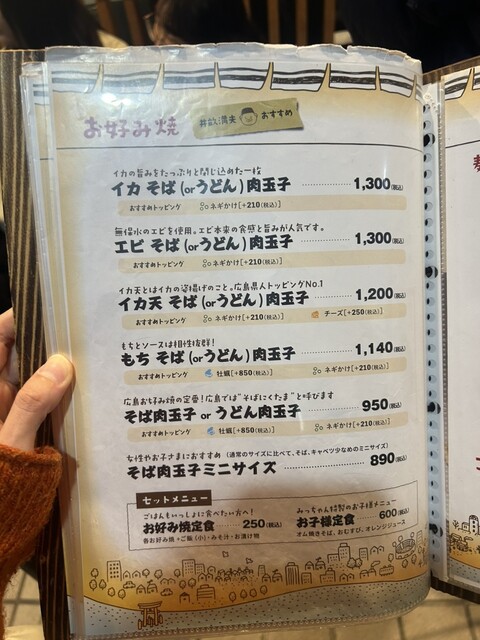 お好み焼
井畝満夫 おすすめ
イカの旨みをたっぷりと閉じ込めた一枚
イカ そば(orうどん)肉玉子 1,300(税込)
おすすめトッピング ネギかけ[+210(税込)]
無保水のエビを使用。エビ本来の食感と旨みが人気です。
エビ そば(orうどん)肉玉子 1,300(税込)
おすすめトッピング ネギかけ[+210(税込)]
イカ天とはイカの姿揚げのこと。広島県人トッピングNo.1
イカ天 そば(orうどん)肉玉子 1,200(税込)
おすすめトッピング ネギかけ[+210(税込)] チーズ[+250(税込)]
もちとソースは相性抜群!
もち そば(orうどん)肉玉子 1,140(税込)
おすすめトッピング 牡蠣[+850(税込)] ネギかけ[+210(税込)]
広島お好み焼の定番!広島では"そばにくたま"と呼びます
そば肉玉子 or うどん肉玉子 950(税込)
おすすめトッピング 牡蠣[+850(税込)] ネギかけ[+210(税込)]
女性やお子さまにおすすめ (通常のサイズに比べて、そば、キャベツ少なめのミニサイズ)
そば肉玉子ミニサイズ 890(税込)
セットメニュー
ごはんもいっしょに食べたい方へ!
お好み焼定食 250(税込)
各お好み焼+ご飯(小)・みそ汁・お漬け物
みっちゃん特製のお子様メニュー
お子様定食 600(税込)
オム焼きそば、おむすび、オレンジジュース